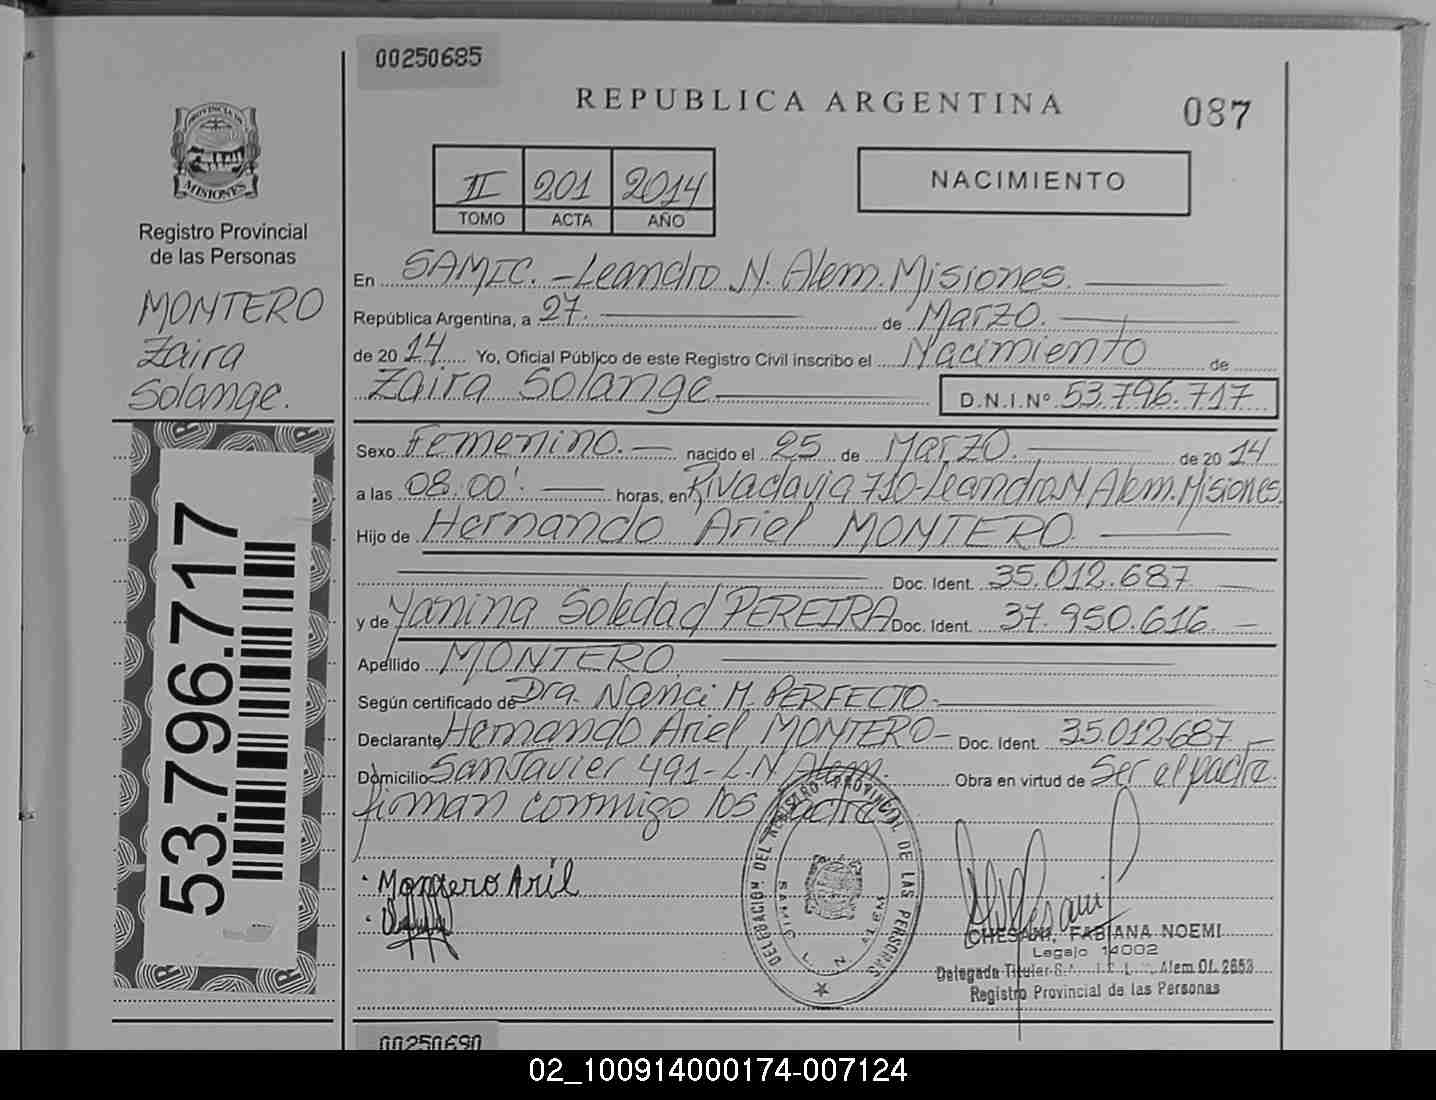 00250685
REPUBLICA ARGENTINA
087
PROVINCIA DE
MISIONES
Registro Provincial
de las Personas
MONTERO
Zaira
Solange.
II 201 2014
TOMO ACTA AÑO
NACIMIENTO
En SAMIC. - Leandro N. Alem. Misiones.
República Argentina, a 27. de Marzo.
de 2014 Yo, Oficial Público de este Registro Civil inscribo el Nacimiento de
Zaira Solange D.N.I.Nº 53.796.717
Sexo Femenino. nacido el 25 de Marzo. de 2014
a las 08:00' horas, en Rivadavia 710-Leandro N Alem. Misiones.
Hijo de Hernando Ariel MONTERO.
Doc. Ident. 35.012.687
y de Yanina Soledad PEREIRA Doc. Ident. 37.950.616.
Apellido MONTERO
Según certificado de Dra. Nanci M. PERFECTO-
Declarante Hernando Ariel MONTERO- Doc. Ident. 35.012.687
Domicilio San Javier 491-L.N Alem. Obra en virtud de Ser el padre.
firman conmigo los padres
Montero Aril
DELEGACION DEL REGISTRO PROVINCIAL DE LAS PERSONAS
SAMIC L. N. ALEM
CHESANI, FABIANA NOEMI
Legajo 14002
Delegada Titular L. Alem Of. 2653
Registro Provincial de las Personas
53.796.717
00250690
02_100914000174-007124